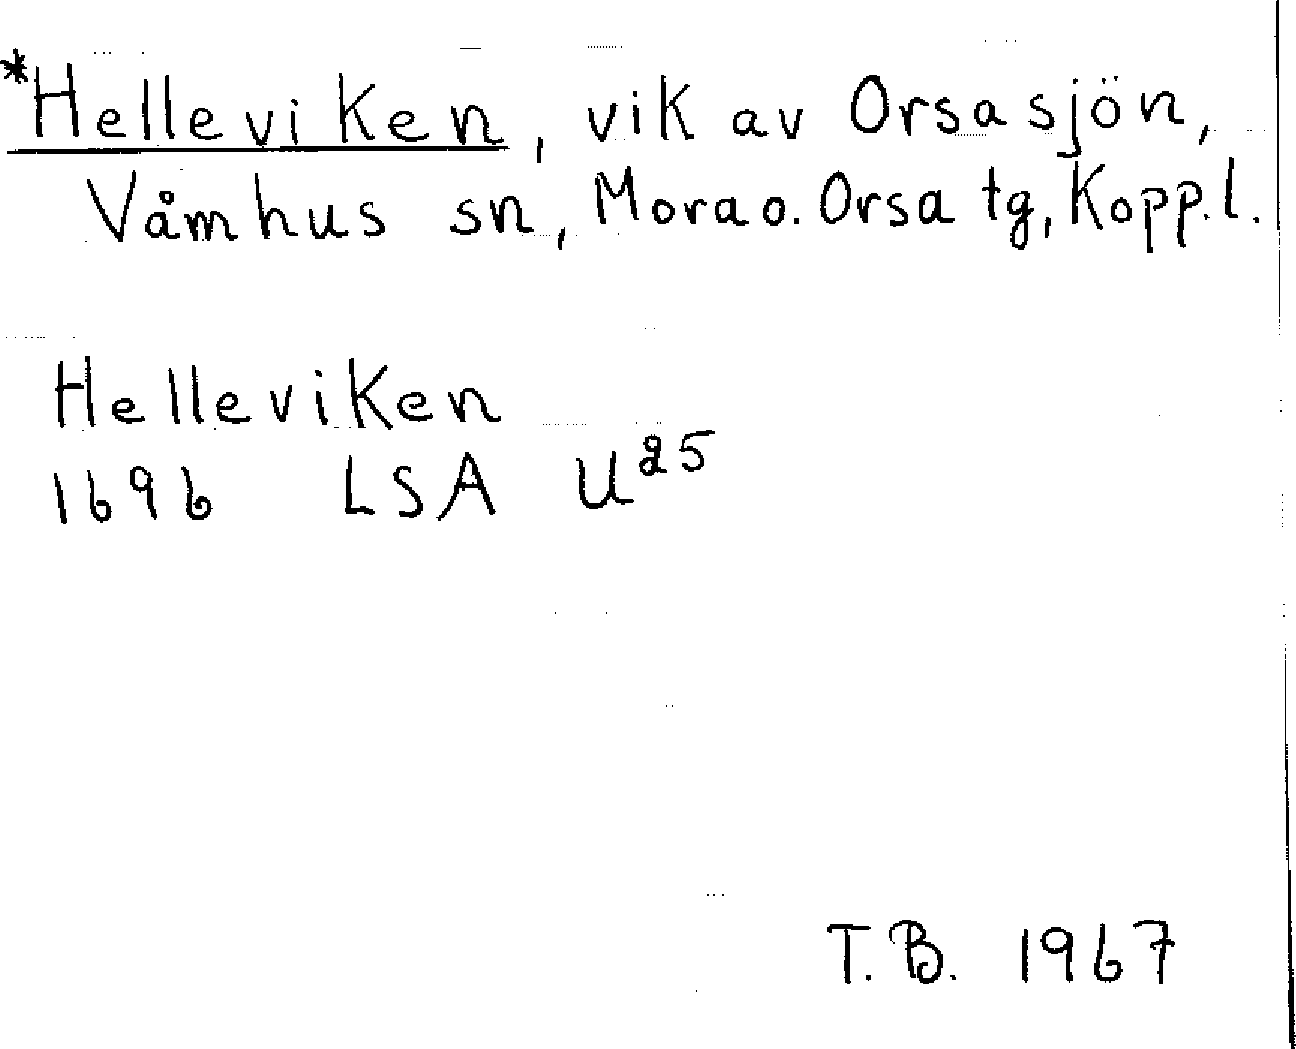 *Helleviken, vik av Orsasjön,
Våmhus sn, Mora o. Orsa tg, Kopp. l.
Helleviken
1696 LSA U²⁵
T.B. 1967